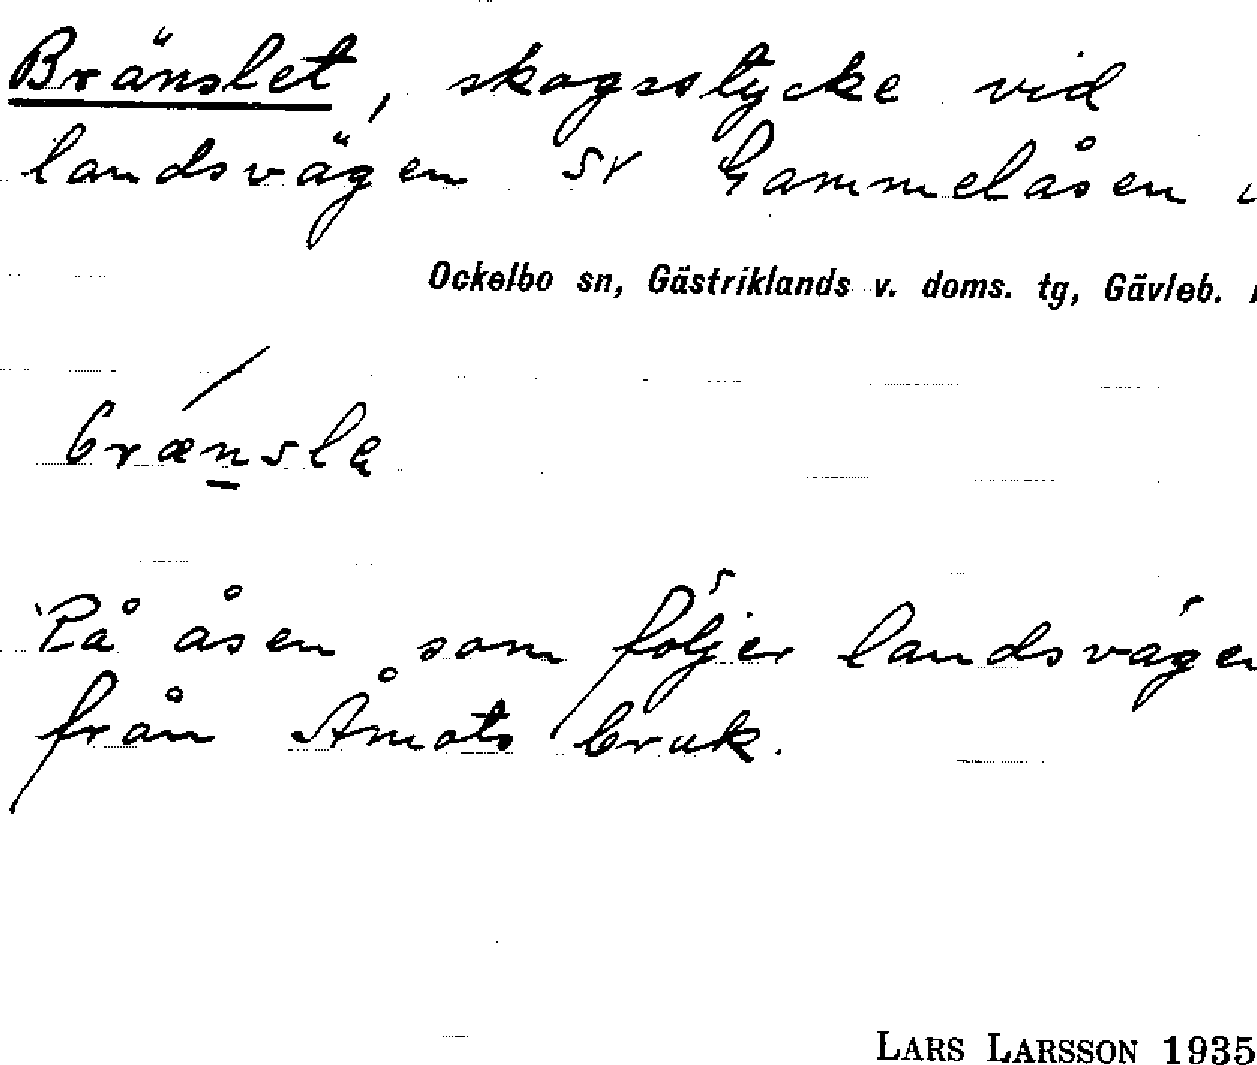 Bränslet, skogsstycke vid
landsvägen sv Gammelåsen
Ockelbo sn, Gästriklands v. doms. tg, Gävleb.
brænsla
På åsen som följer landsvägen
från Åmots bruk.
LARS LARSSON 1935